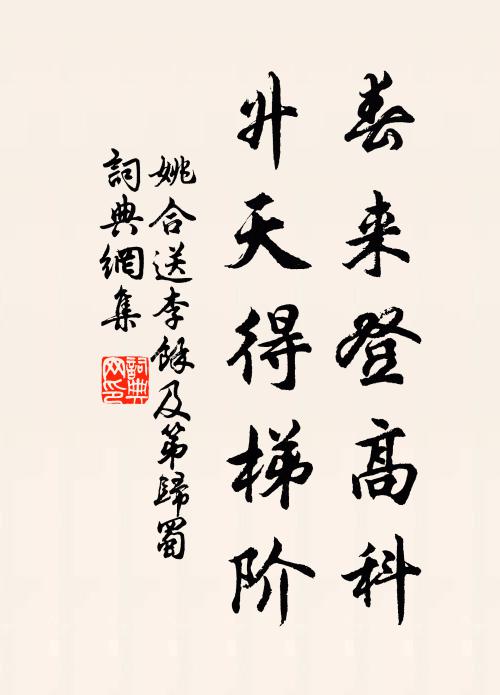 春来登高科
升天得梯阶
姚合送李餘及第歸蜀
詞典網集
詞典
网印